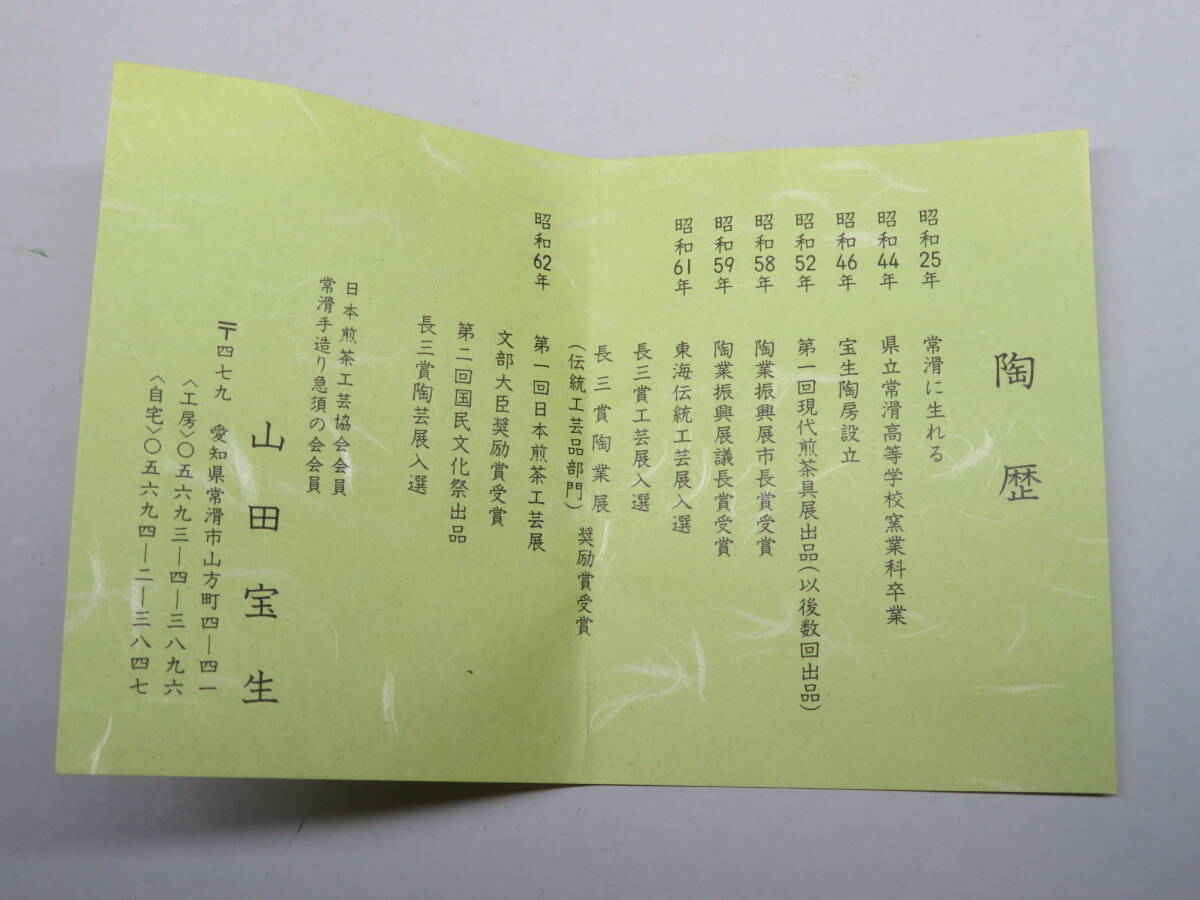 陶歴
昭和25年 常滑に生れる
昭和44年 県立常滑高等学校窯業科卒業
昭和46年 宝生陶房設立
昭和52年 第一回現代煎茶具展出品(以後数回出品)
昭和58年 陶業振興展市長賞受賞
昭和59年 陶業振興展議長賞受賞
昭和61年 東海伝統工芸展入選
長三賞工芸展入選
長三賞陶業展
(伝統工芸品部門) 奨励賞受賞
昭和62年 第一回日本煎茶工芸展
文部大臣奨励賞受賞
第二回国民文化祭出品
長三賞陶芸展入選
日本煎茶工芸協会会員
常滑手造り急須の会会員
山田宝生
〒四七九 愛知県常滑市山方町四―四一
〈工房〉〇五六九三―四―三八九六
〈自宅〉〇五六九四―二―三八四七